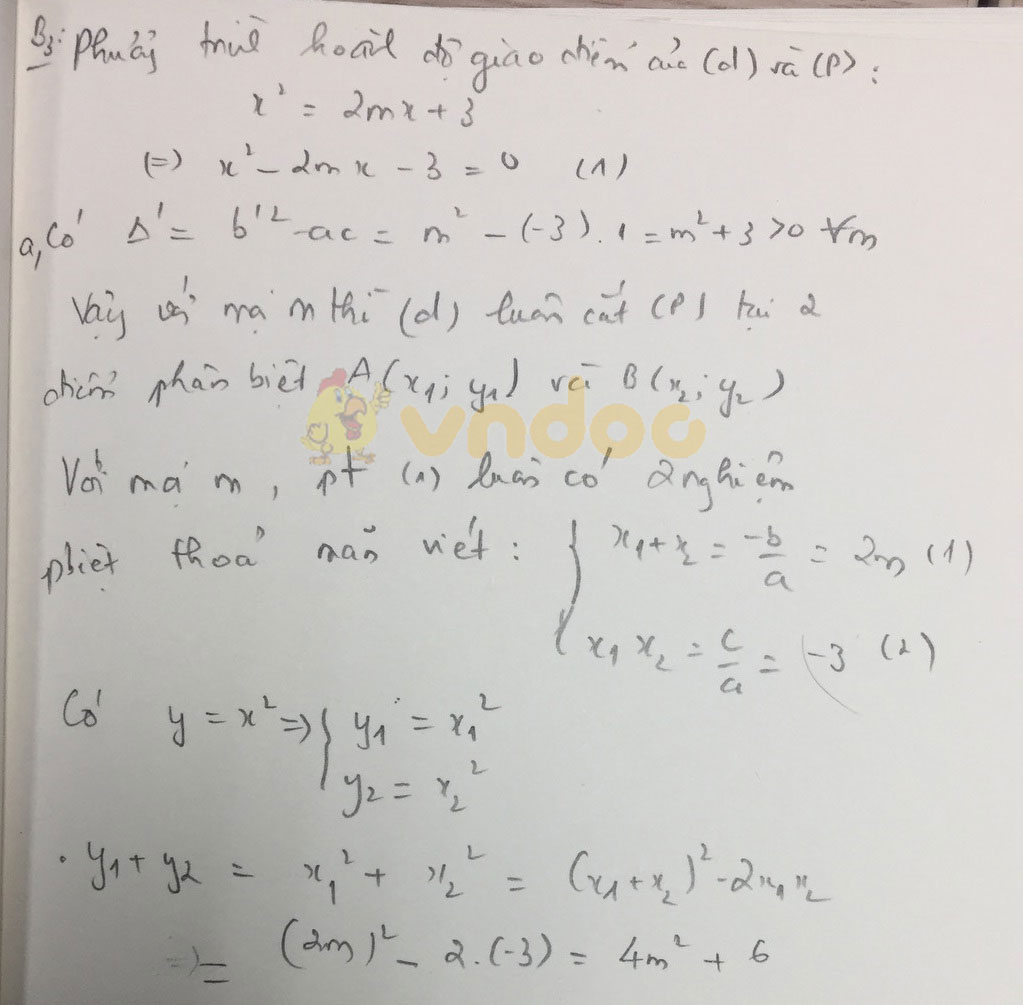 B3: Phương trình hoành độ giao điểm của (d) và (P):
x² = 2mx + 3
(=) x² - 2mx - 3 = 0 (1)
a, Có Δ' = b'² - ac = m² - (-3).1 = m² + 3 > 0 ∀m
Vậy với mọi m thì (d) luôn cắt (P) tại 2
điểm phân biệt A(x₁; y₁) và B(x₂; y₂)
vndoc
Với mọi m, pt (1) luôn có 2 nghiệm
pbiệt thoả mãn viét: { x₁ + x₂ = -b/a = 2m (1)
x₁ x₂ = c/a = -3 (2)
Có y = x² => { y₁ = x₁²
y₂ = x₂²
• y₁ + y₂ = x₁² + x₂² = (x₁ + x₂)² - 2x₁x₂
=> = (2m)² - 2.(-3) = 4m² + 6